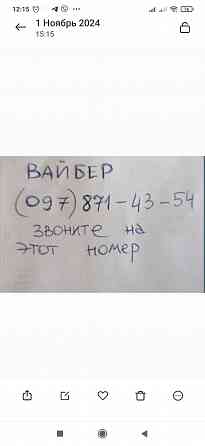 12:15
1 Ноябрь 2024
15:15
ВАЙБЕР
(097) 871-43-54
звоните на
этот номер